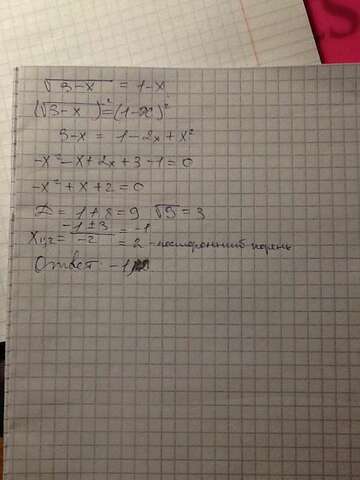 √3-x = 1-x
(√3-x)² = (1-x)²
3-x = 1-2x+x²
-x²-x+2x+3-1=0
-x²+x+2=0
D = 1+8=9 √9=3
x₁,₂ = (-1±3)/-2 = -1
= 2 - посторонний корень
Ответ: -1